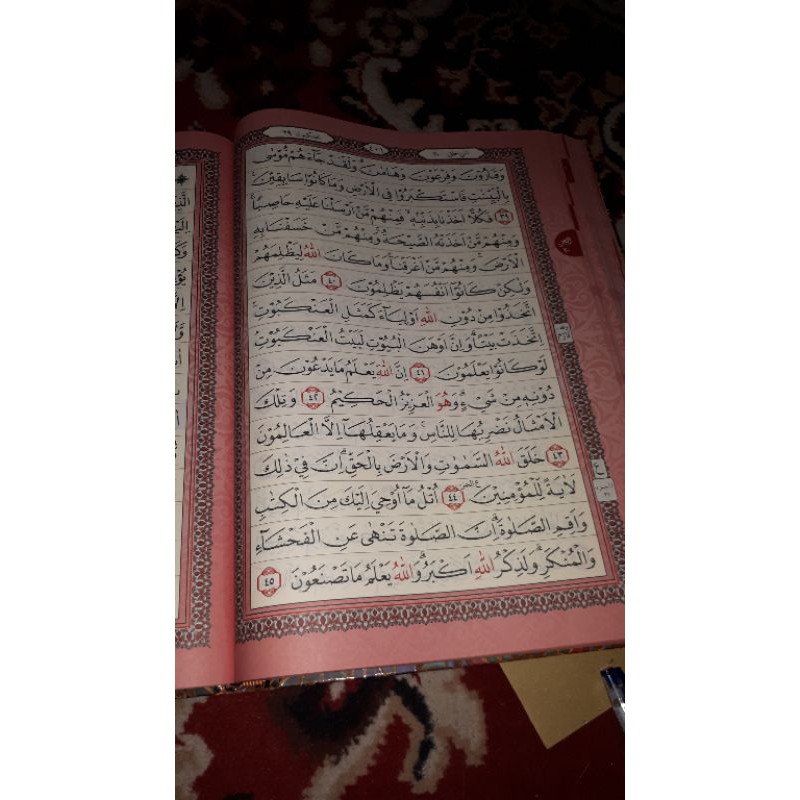 ٤٠١
وَقَارُوْنَ وَفِرْعَوْنَ وَهَامٰنَۗ وَلَقَدْ جَاۤءَهُمْ مُّوْسٰى
بِالْبَيِّنٰتِ فَاسْتَكْبَرُوْا فِى الْاَرْضِ وَمَا كَانُوْا سَابِقِيْنَۚ
٣٩ فَكُلًّا اَخَذْنَا بِذَنْۢبِهٖۙ فَمِنْهُمْ مَّنْ اَرْسَلْنَا عَلَيْهِ حَاصِبًاۚ
وَمِنْهُمْ مَّنْ اَخَذَتْهُ الصَّيْحَةُۚ وَمِنْهُمْ مَّنْ خَسَفْنَا بِهِ
الْاَرْضَۚ وَمِنْهُمْ مَّنْ اَغْرَقْنَاۚ وَمَا كَانَ اللّٰهُ لِيَظْلِمَهُمْ
وَلٰكِنْ كَانُوْٓا اَنْفُسَهُمْ يَظْلِمُوْنَ ٤٠ مَثَلُ الَّذِيْنَ
اتَّخَذُوْا مِنْ دُوْنِ اللّٰهِ اَوْلِيَاۤءَ كَمَثَلِ الْعَنْكَبُوْتِۚ
اِتَّخَذَتْ بَيْتًاۗ وَاِنَّ اَوْهَنَ الْبُيُوْتِ لَبَيْتُ الْعَنْكَبُوْتِۘ
لَوْ كَانُوْا يَعْلَمُوْنَ ٤١ اِنَّ اللّٰهَ يَعْلَمُ مَا يَدْعُوْنَ مِنْ
دُوْنِهٖ مِنْ شَيْءٍۗ وَهُوَ الْعَزِيْزُ الْحَكِيْمُ ٤٢ وَتِلْكَ
الْاَمْثَالُ نَضْرِبُهَا لِلنَّاسِۚ وَمَا يَعْقِلُهَآ اِلَّا الْعَالِمُوْنَ
٤٣ خَلَقَ اللّٰهُ السَّمٰوٰتِ وَالْاَرْضَ بِالْحَقِّۗ اِنَّ فِيْ ذٰلِكَ
لَاٰيَةً لِّلْمُؤْمِنِيْنَ ٤٤ اُتْلُ مَآ اُوْحِيَ اِلَيْكَ مِنَ الْكِتٰبِ
وَاَقِمِ الصَّلٰوةَۗ اِنَّ الصَّلٰوةَ تَنْهٰى عَنِ الْفَحْشَاۤءِ
وَالْمُنْكَرِۗ وَلَذِكْرُ اللّٰهِ اَكْبَرُۗ وَاللّٰهُ يَعْلَمُ مَا تَصْنَعُوْنَ ٤٥